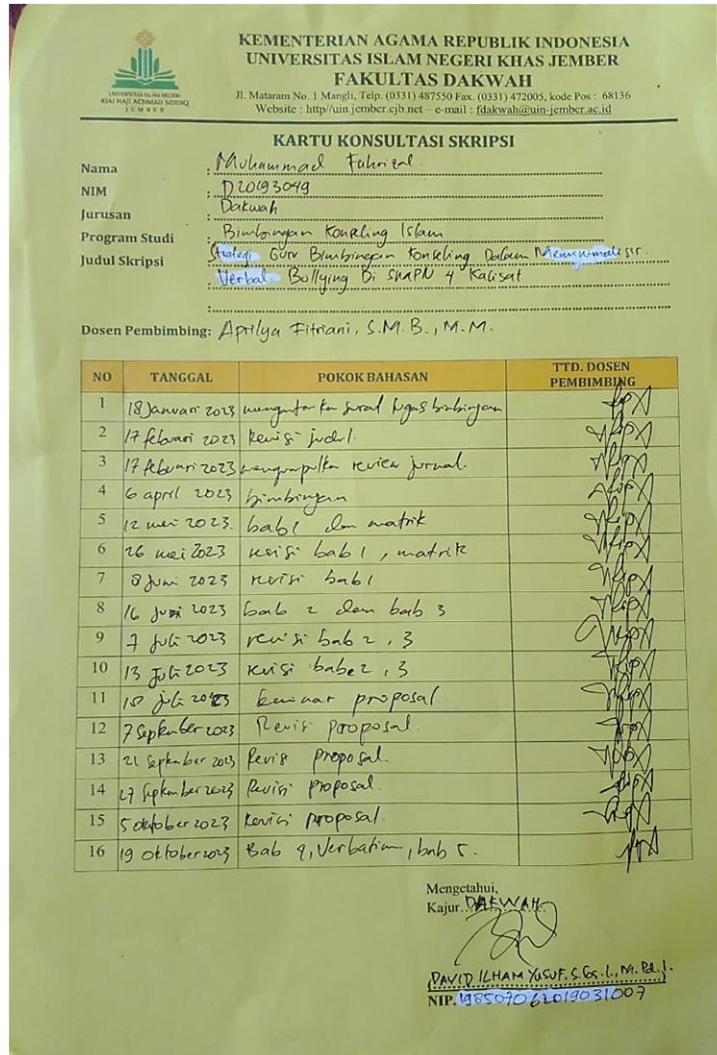 KEMENTERIAN AGAMA REPUBLIK INDONESIA
UNIVERSITAS ISLAM NEGERI KHAS JEMBER
FAKULTAS DAKWAH
Jl. Mataram No. 1 Mangli, Telp. (0331) 487550 Fax. (0331) 472005, kode Pos : 68136
Website : http//uin.jember.cjb.net – e-mail : fdakwah@uin-jember.ac.id
UNIVERSITAS ISLAM NEGERI
KIAI HAJI ACHMAD SIDDIQ
JEMBER
KARTU KONSULTASI SKRIPSI
Nama : Muhammad Fahrizal
NIM : D20193049
Jurusan : Dakwah
Program Studi : Bimbingan Konseling Islam
Judul Skripsi : Strategi Guru Bimbingan Konseling Dalam Meminimalisir
Verbal Bullying Di SMPN 4 Kalisat
Dosen Pembimbing: Aprilya Fitriani, S.M.B., M.M.
NO TANGGAL POKOK BAHASAN TTD. DOSEN PEMBIMBING
1 18 Januari 2023 mengantarkan surat tugas bimbingan
2 17 februari 2023 Revisi judul
3 17 februari 2023 mengumpulkan review jurnal.
4 6 april 2023 bimbingan
5 12 mei 2023. bab 1 dan matrik
6 26 mei 2023 revisi bab 1, matrik
7 8 Juni 2023 revisi bab 1
8 16 Juni 2023 bab 2 dan bab 3
9 7 juli 2023 revisi bab 2, 3
10 13 Juli 2023 revisi bab 2, 3
11 18 juli 2023 seminar proposal
12 7 September 2023 Revisi proposal.
13 21 September 2023 Revisi proposal.
14 27 September 2023 Revisi proposal.
15 5 oktober 2023 Revisi proposal
16 19 oktober 2023 Bab 4, Verbatim, bab 5.
Mengetahui,
Kajur. DAKWAH
DAVID ILHAM YUSUF. S.Sos.I., M.Pd.I.
NIP. 198507062019031007